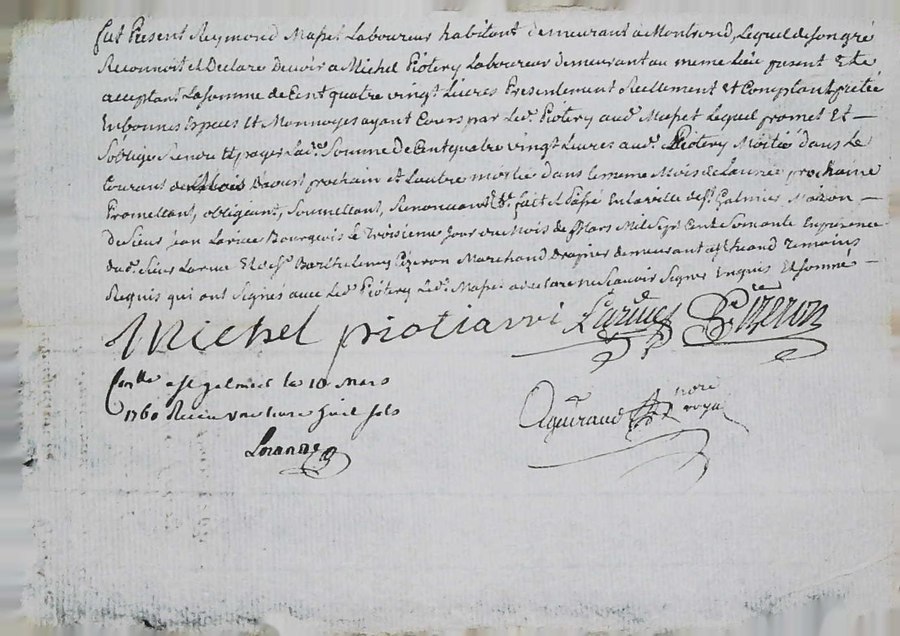 fut Présent Reymond Mapet Laboureur habitant demeurant a Montrond, Lequel de son gré
Reconnoit et Declare Devoir a Michel Piotery Laboureur demeurant au meme Lieu present Et a
acceptant La somme de Cent quatre vingt Livres Presentement Reellement et Comptant pretée
En bonnes Especes Et Monnoyes ayant Cours par Led. Piotery aud. Mapet Lequel promet Et —
S'oblige Rendre Et payer Lade. Somme De Cent quatre vingt Livres aud. Piotery Moitié dans Le
Courant de Mois Daoust prochain et Lautre moitié dans le meme Mois de Lannée prochaine
Promettant, obligeant, Soumettant, Renonceant &c. fait et Passé En la ville de St. Galmier Maison —
De Sieur Jean Larüe Bourgeois Le Troisieme Jour du Mois de Mars Mil Sept Cent Soixante En presence
dud. Sieur Larüe Et de Sr. Barthelemy Pezeron Marchand Drapier demeurant a St. Rand Temoins
Requis qui ont Signés avec Led. Piotery Led. Mapet a declaré ne Scavoir Signer Enquis Et Sommé —
Michel piotiarvi Larüe Pezeron
Conlle a St galmier le 10 Mars
1760 Receu une livre huit sols
Aguiraud nore
royal